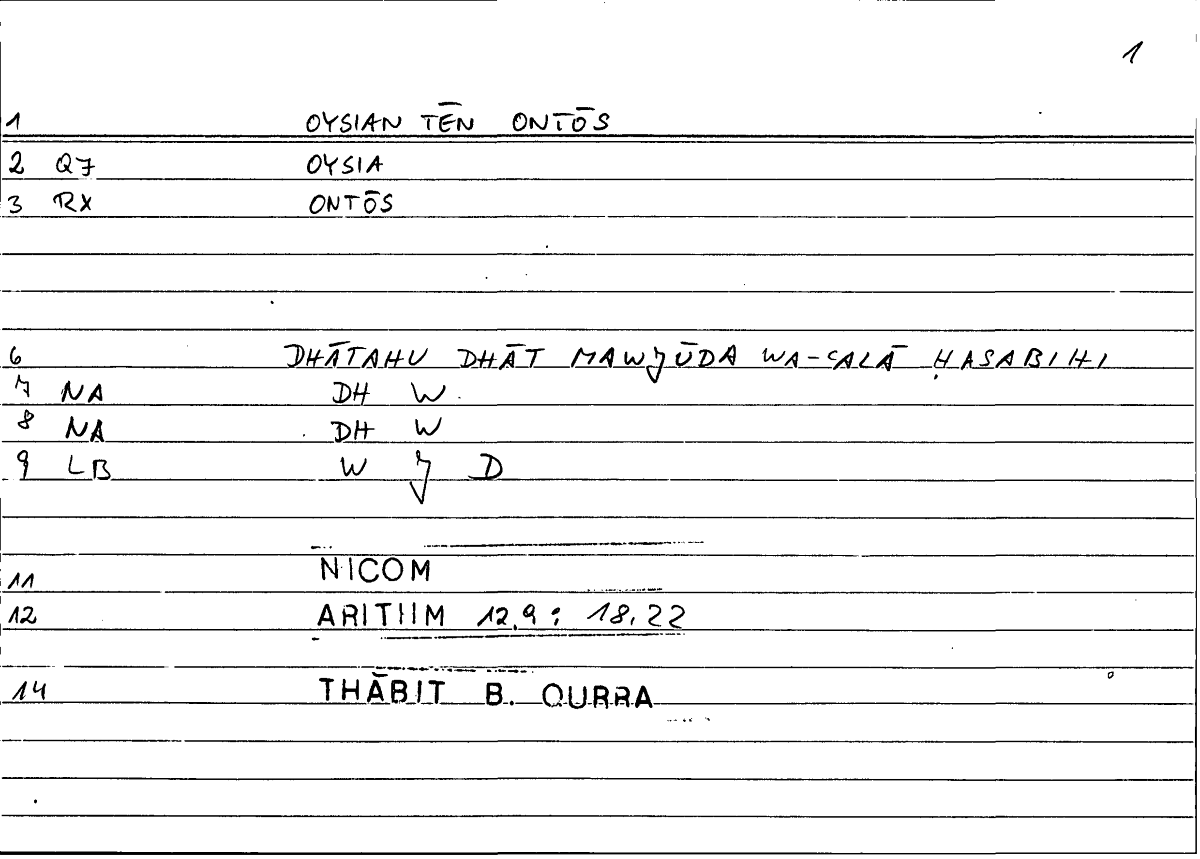 1
1 OYSIAN TĒN ONTŌS
2 Q7 OYSIA
3 RX ONTŌS
6 DHĀTAHU DHĀT MAWJŪDA WA-ʿALĀ ḤASABIHI
7 NA DH W
8 NA DH W
9 LB W J D
11 NICOM
12 ARITHM 12,9 : 18,22
14 THĀBIT B. QURRA